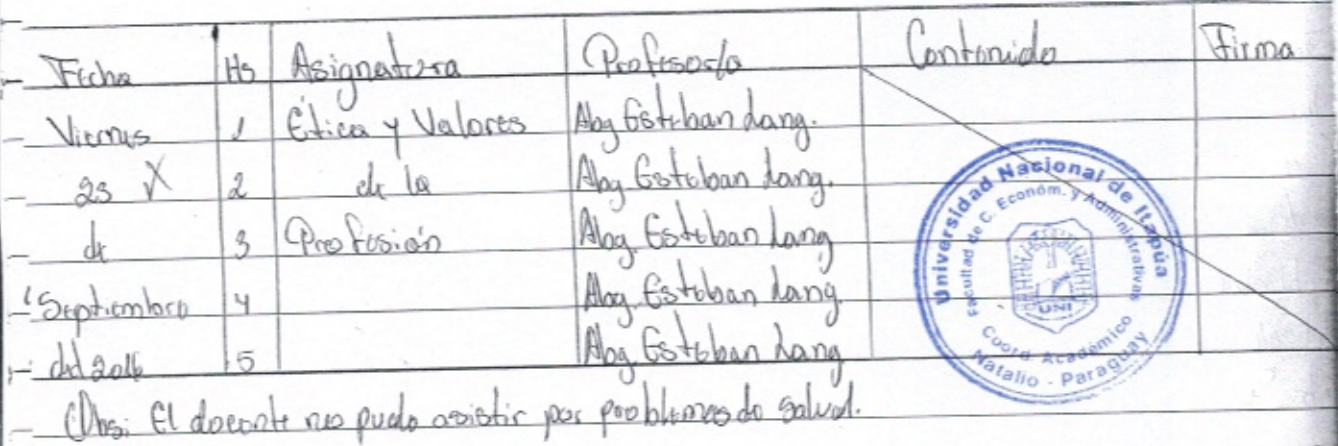 Fecha Hs Asignatura Profesor/a Contenido Firma
Viernes 1 Ética y Valores Abg Esteban Lang.
23 2 de la Abg. Esteban Lang.
de 3 Profesión Abg. Esteban Lang
Septiembre 4 Abg. Esteban Lang.
del 2016 5 Abg. Esteban Lang
Obs: El docente no pudo asistir por problemas de salud.
Universidad Nacional de Itapúa
Facultad de C. Económ. y Administrativas
UNI
Coord. Académico
Natalio - Paraguay